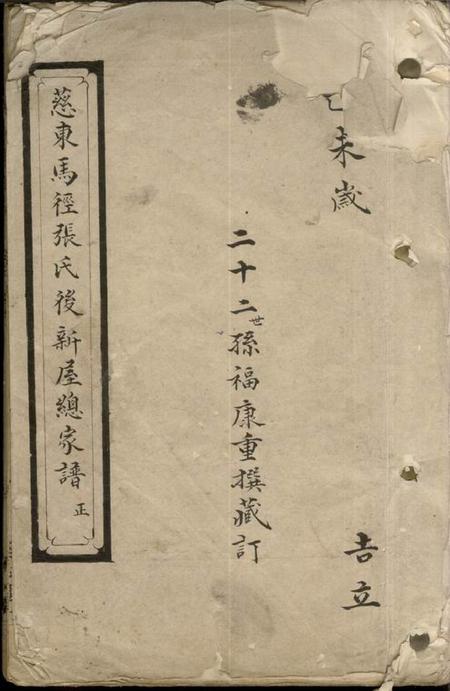 未歲
吉立
二十二世孫福康重撰藏訂
慈東馬徑張氏後新屋總家譜 正